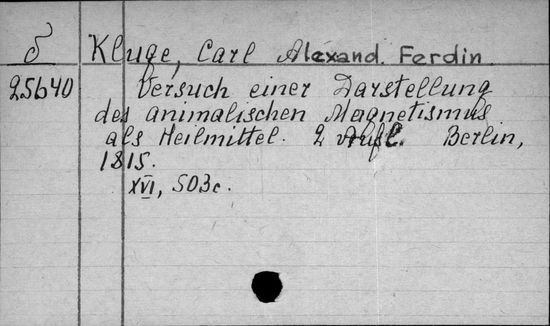 δ Kluge, Carl Alexand. Ferdin.
25640 Versuch einer Darstellung
des animalischen Magnetismus
als Heilmittel. 2 Aufl. Berlin,
1815.
XVI, 503c.